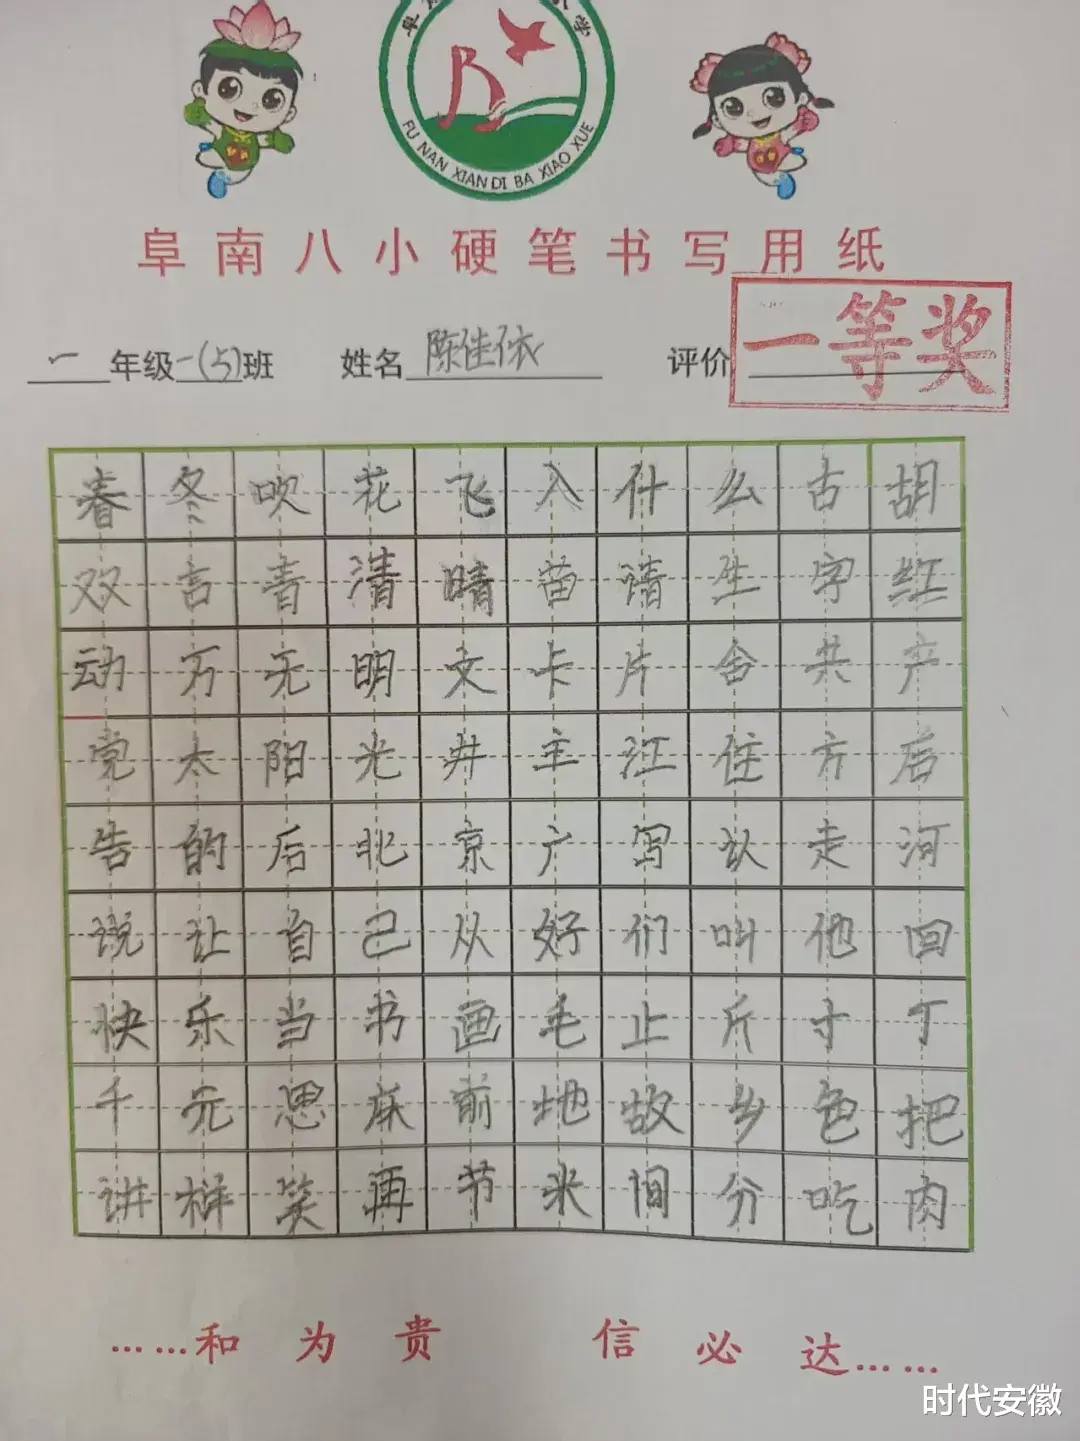 FU NAN XIAN DI BA XIAO XUE
阜南八小硬笔书写用纸
一年级一(5)班 姓名陈佳依 评价一等奖
春冬吹花飞入什么古胡
双言青清晴苗请生字红
动万无明文卡片舍共产
党太阳光井主江住方后
告的后北京广写认走河
说让首己从好们叫他回
快乐当书画毛止斤寸丁
千元思床前地故乡色把
讲样笑再节米间分吃肉
……和为贵 信必达……
时代安徽